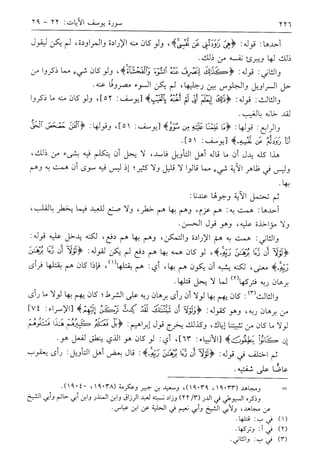 ٢٢٦ سورة يوسف الآيات: ٢٢ - ٢٩
أحدها: قوله: ﴿هِيَ رَاوَدَتْنِي عَن نَّفْسِي﴾، ولو كان منه الإرادة والمراودة، لم يكن ليقول
ذلك لها ويبرئ نفسه من ذلك.
والثاني: قوله: ﴿كَذَٰلِكَ لِنَصْرِفَ عَنْهُ السُّوءَ وَالْفَحْشَاءَ﴾، ولو كان شيء مما ذكروا من
حل السراويل والجلوس بين رجليها، لم يكن السوء مصروفًا عنه.
والثالث: قوله: ﴿ذَٰلِكَ لِيَعْلَمَ أَنِّي لَمْ أَخُنْهُ بِالْغَيْبِ﴾ [يوسف: ٥٢]، ولو كان منه ما ذكروا
لقد خانه بالغيب.
والرابع: قولها: ﴿مَا عَلِمْنَا عَلَيْهِ مِن سُوءٍ﴾ [يوسف: ٥١]، وقولها: ﴿الْآنَ حَصْحَصَ الْحَقُّ
أَنَا رَاوَدتُّهُ عَن نَّفْسِهِ﴾ [يوسف: ٥١].
هذا كله يدل أن ما قاله أهل التأويل فاسد، لا يحل أن يتكلم فيه بشيء من ذلك،
وليس في ظاهر الآية شيء مما قالوا لا قليل ولا كثير؛ إذ ليس فيه سوى أن همت به وهم
بها.
ثم تحتمل الآية وجوهًا عندنا:
أحدها: همت به: هم عزم، وهم بها هم خطر، ولا صنع للعبد فيما يخطر بالقلب،
ولا مؤاخذة عليه، وهو قول الحسن.
والثاني: همت به هم الإرادة والتمكن، وهم بها هم دفع، لكنه يدخل عليه قوله:
﴿لَوْلَا أَن رَّأَىٰ بُرْهَانَ رَبِّهِ﴾، لو كان همه بها هم دفع لم يكن لقوله: ﴿لَوْلَا أَن رَّأَىٰ بُرْهَانَ
رَبِّهِ﴾ معنى، لكنه يشبه أن يكون هم بها، أي: هم بقتلها(١)، فإذا كان هم بقتلها فرأى
برهان ربه فتركها(٢) لما لا يحل قتلها.
والثالث(٣): كان يهم بها لولا أن رأى برهان ربه على الشرط؛ كأن يهم بها لولا ما رأى
من برهان ربه، وهو كقوله: ﴿وَلَوْلَا أَن ثَبَّتْنَاكَ لَقَدْ كِدتَّ تَرْكَنُ إِلَيْهِمْ﴾ [الإسراء: ٧٤]
لولا ما كان من تثبيتنا إياك، وكذلك يخرج قول إبراهيم: ﴿بَلْ فَعَلَهُ كَبِيرُهُمْ هَٰذَا فَسْئَلُوهُمْ
إِن كَانُوا يَنطِقُونَ﴾ [الأنبياء: ٦٣]، أي: لو كان هو الذي ينطق لفعل هو.
ثم اختلف في قوله: ﴿لَوْلَا أَن رَّأَىٰ بُرْهَانَ رَبِّهِ﴾: قال بعض أهل التأويل: رأى يعقوب
عاضًا على شفتيه.
= ومجاهد (١٩٠٣٣، ١٩٠٣٩)، وسعيد بن جبير وعكرمة (١٩٠٣٨، ١٩٠٤٠).
وذكره السيوطي في الدر (٢٢/٣) وزاد نسبته لعبد الرزاق وابن المنذر وابن أبي حاتم وأبي الشيخ
عن مجاهد، ولأبي الشيخ وأبي نعيم في الحلية عن ابن عباس.
(١) في ب: قتلها.
(٢) في أ: وتركها.
(٣) في ب: والثاني.